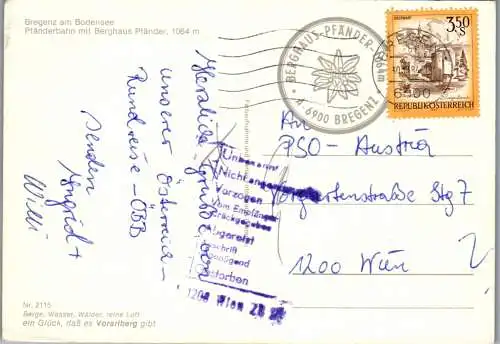 Bregenz am Bodensee
Pfänderbahn mit Berghaus Pfänder, 1064 m
Herzliche Grüße von
unserer Österreich-
Rundreise - ÖBB
senden
Ingrid +
Willi
Nr. 2115
Berge, Wasser, Wälder, reine Luft
ein Glück, daß es Vorarlberg gibt
BERGHAUS-PFÄNDER
1064m
A-6900 BREGENZ
6900
3.50
S
REPUBLIK ÖSTERREICH
An
PSO-Austria
Stg 7
1200 Wien
Unbekannt
Nicht angenommen
Verzogen
Vom Empfänger
Abgereist
Anschrift
ungenügend
Verstorben
1200 Wien